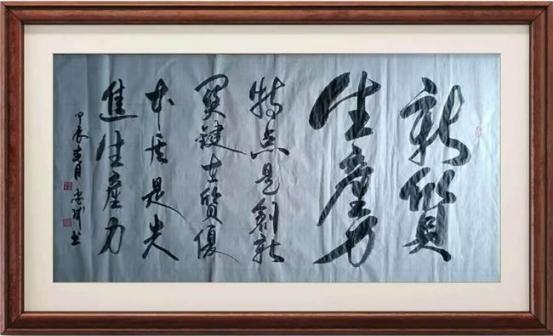 新質
生產力
特点是創新
関鍵在質優
本质是先
進生產力
甲辰春月 书